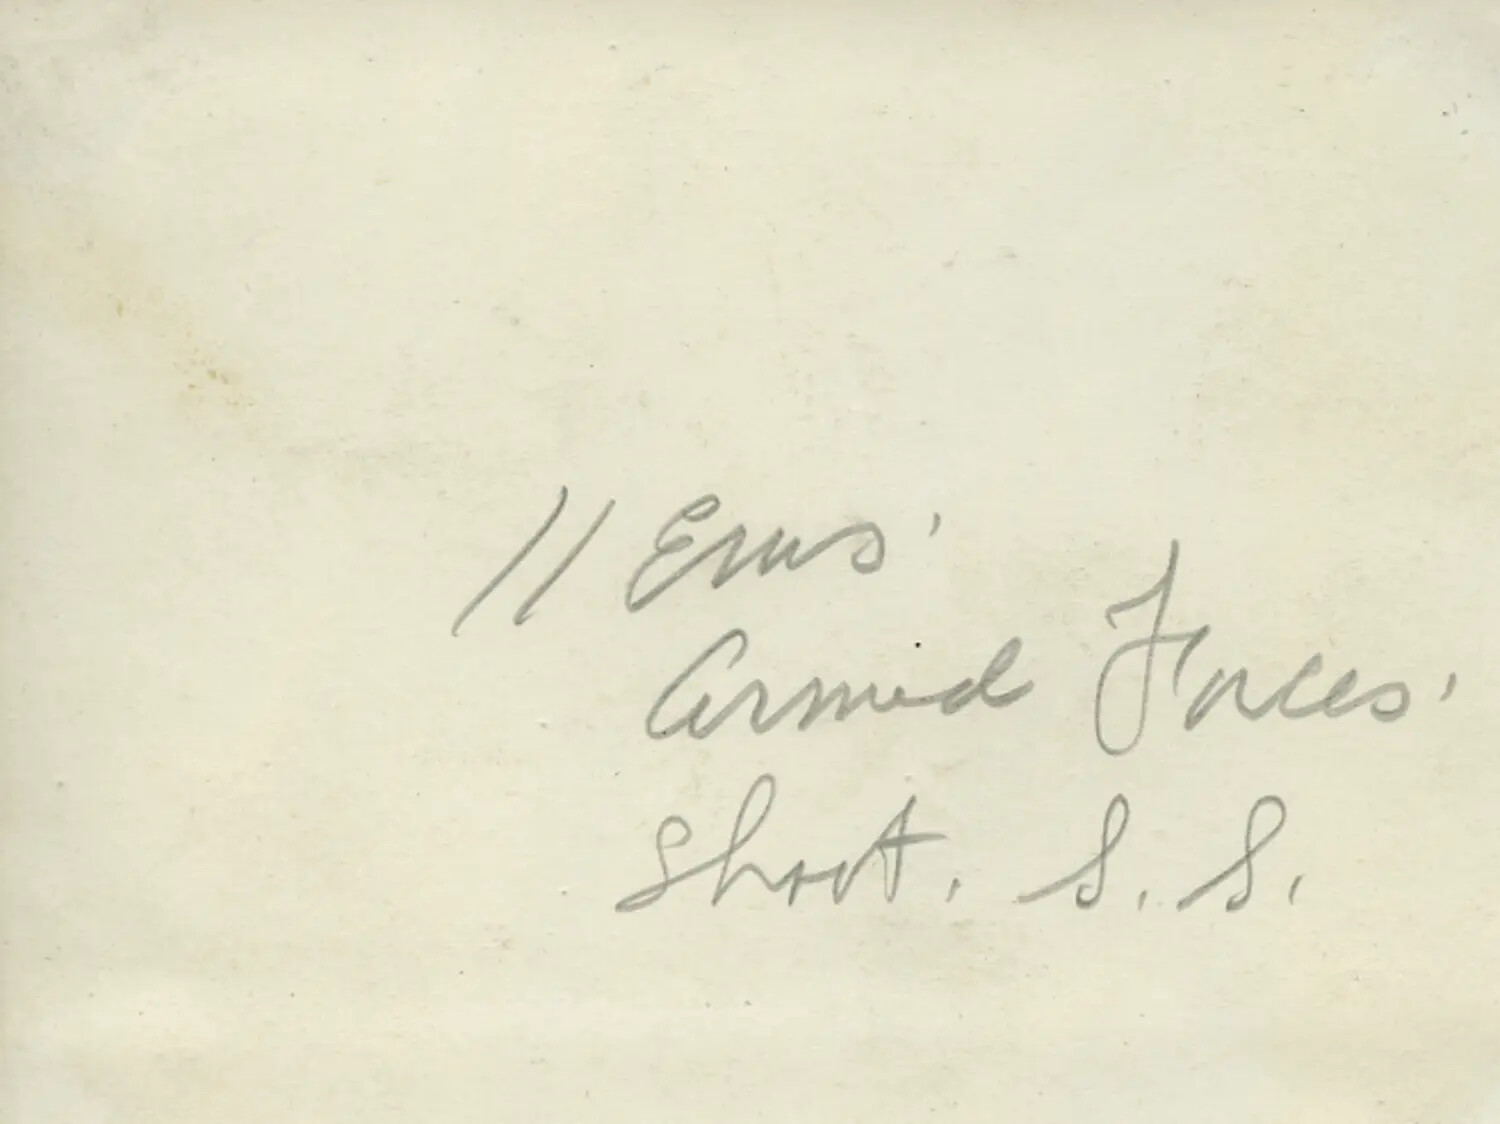 11 Ems.
Armed Forces.
Shoot. S. S.